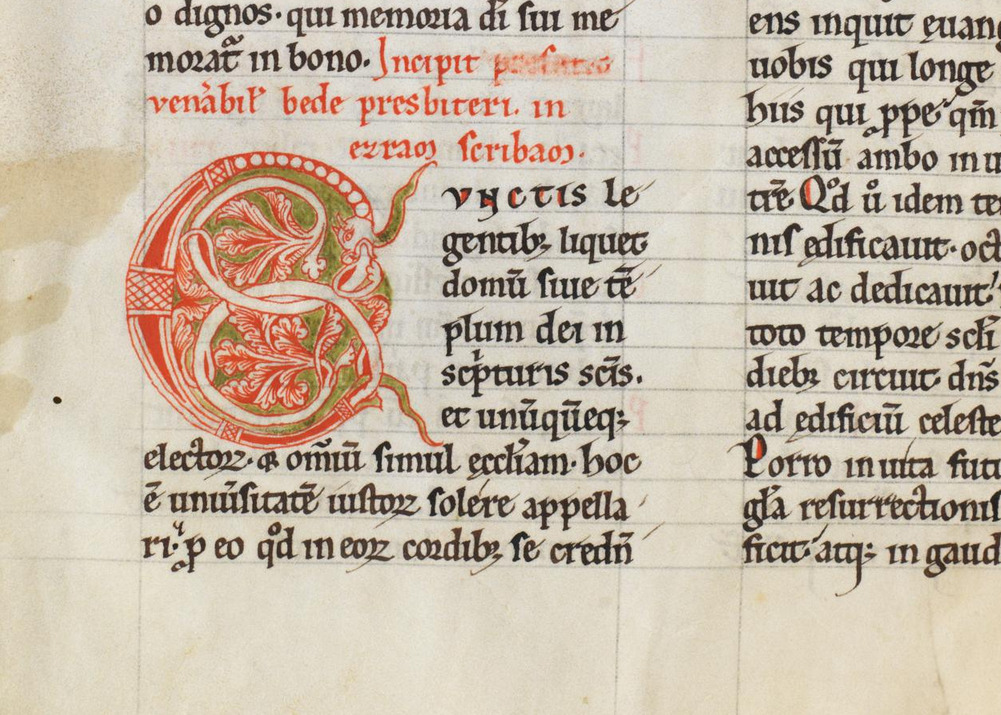 o dignos· qui memoria dī sui me
morat᷑ in bono. Incipit prefatio
venerabil' bede presbiteri. in
ezram scribam.
CVNCTIS le
gentib; liquet
domū siue tē
plum dei in
scͥpturis scīs.
et unūqūeq;
electoꝝ· & omīū simul ęccłiam· hoc
ē unuīsitatē iustoꝝ solere appella
ri· ꝑ eo qͦd in eoꝝ cordib; se credn̄
ens inquit ęuang
uobis qui longe
hiis qui ꝓpe· qm̄
accessū ambo in u
trē Qͦd u̾ idem te
nis ędificauit· octa
uit ac dedicauit·
toto tempore scłi
dieb; circuit dn̄s
ad ędificiū celeste
Porro in uita futu
głā resurrectionis
ficit· atq; in gaud